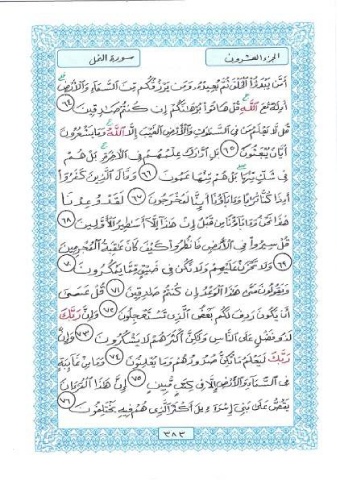 الجزء العشرون
سورة النمل
أَمَّن يَبْدَؤُا۟ ٱلْخَلْقَ ثُمَّ يُعِيدُهُۥ وَمَن يَرْزُقُكُم مِّنَ ٱلسَّمَآءِ وَٱلْأَرْضِ
أَءِلَٰهٌ مَّعَ ٱللَّهِ قُلْ هَاتُوا۟ بُرْهَٰنَكُمْ إِن كُنتُمْ صَٰدِقِينَ ٦٤
قُل لَّا يَعْلَمُ مَن فِى ٱلسَّمَٰوَٰتِ وَٱلْأَرْضِ ٱلْغَيْبَ إِلَّا ٱللَّهُ وَمَا يَشْعُرُونَ
أَيَّانَ يُبْعَثُونَ ٦٥ بَلِ ٱدَّٰرَكَ عِلْمُهُمْ فِى ٱلْأَخِرَةِ بَلْ هُمْ
فِى شَكٍّ مِّنْهَا بَلْ هُم مِّنْهَا عَمُونَ ٦٦ وَقَالَ ٱلَّذِينَ كَفَرُوٓا۟
أَءِذَا كُنَّا تُرَٰبًا وَءَابَآؤُنَآ أَئِنَّا لَمُخْرَجُونَ ٦٧ لَقَدْ وُعِدْنَا
هَٰذَا نَحْنُ وَءَابَآؤُنَا مِن قَبْلُ إِنْ هَٰذَآ إِلَّآ أَسَٰطِيرُ ٱلْأَوَّلِينَ ٦٨
قُلْ سِيرُوا۟ فِى ٱلْأَرْضِ فَٱنظُرُوا۟ كَيْفَ كَانَ عَٰقِبَةُ ٱلْمُجْرِمِينَ
٦٩ وَلَا تَحْزَنْ عَلَيْهِمْ وَلَا تَكُن فِى ضَيْقٍ مِّمَّا يَمْكُرُونَ ٧٠
وَيَقُولُونَ مَتَىٰ هَٰذَا ٱلْوَعْدُ إِن كُنتُمْ صَٰدِقِينَ ٧١ قُلْ عَسَىٰٓ
أَن يَكُونَ رَدِفَ لَكُم بَعْضُ ٱلَّذِى تَسْتَعْجِلُونَ ٧٢ وَإِنَّ رَبَّكَ
لَذُو فَضْلٍ عَلَى ٱلنَّاسِ وَلَٰكِنَّ أَكْثَرَهُمْ لَا يَشْكُرُونَ ٧٣ وَإِنَّ
رَبَّكَ لَيَعْلَمُ مَا تُكِنُّ صُدُورُهُمْ وَمَا يُعْلِنُونَ ٧٤ وَمَا مِنْ غَآئِبَةٍ
فِى ٱلسَّمَآءِ وَٱلْأَرْضِ إِلَّا فِى كِتَٰبٍ مُّبِينٍ ٧٥ إِنَّ هَٰذَا ٱلْقُرْءَانَ
يَقُصُّ عَلَىٰ بَنِىٓ إِسْرَٰٓءِيلَ أَكْثَرَ ٱلَّذِى هُمْ فِيهِ يَخْتَلِفُونَ ٧٦
٣٨٣